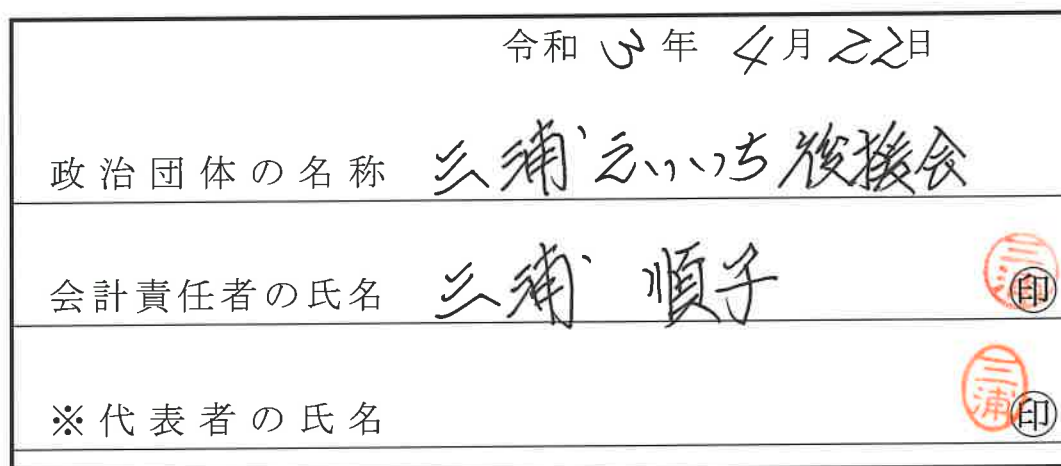 令和3年 4月22日
政治団体の名称 三浦えいいち後援会
会計責任者の氏名 三浦 順子 三浦 印
※代表者の氏名 三浦 印